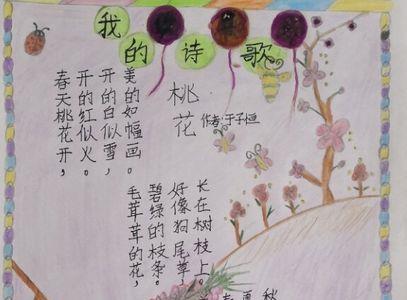 我的诗歌
桃花
作者:于子恒
春天桃花开,
开的红似火。
开的白似雪,
美的如幅画。
毛茸茸的花,
碧绿的枝条。
好像狗尾草
长在树枝上。
春
夏
秋